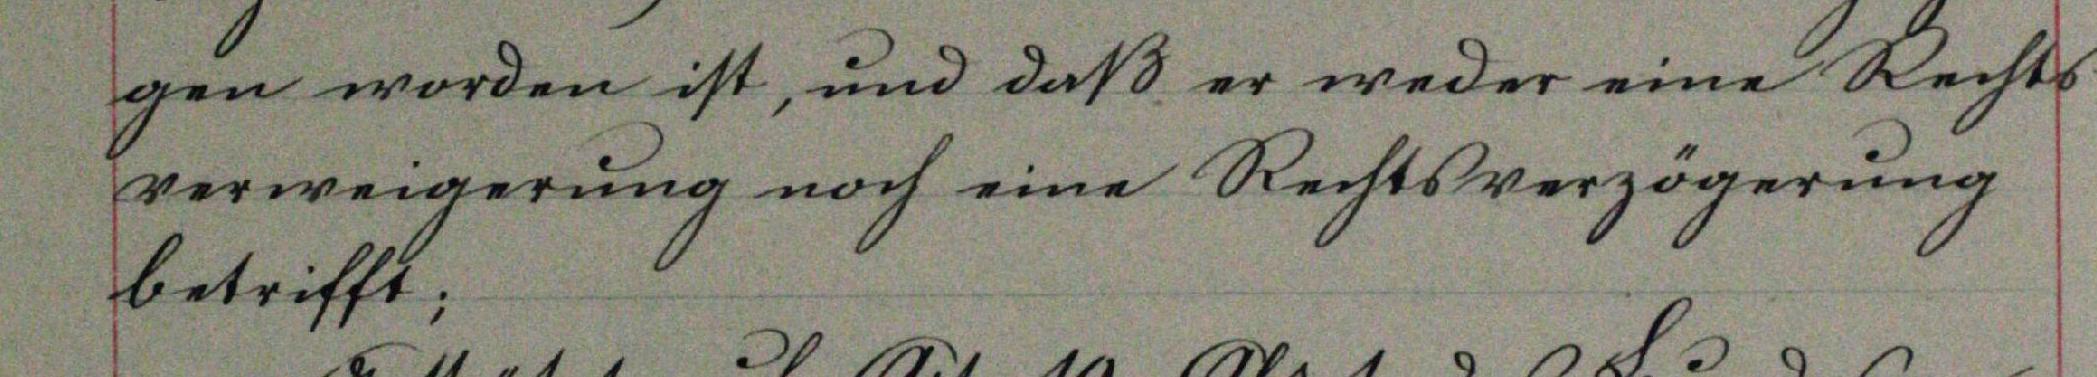 gen worden ist, und daß er weder eine Rechts
verweigerung noch eine Rechtsverzögerung
betrifft;